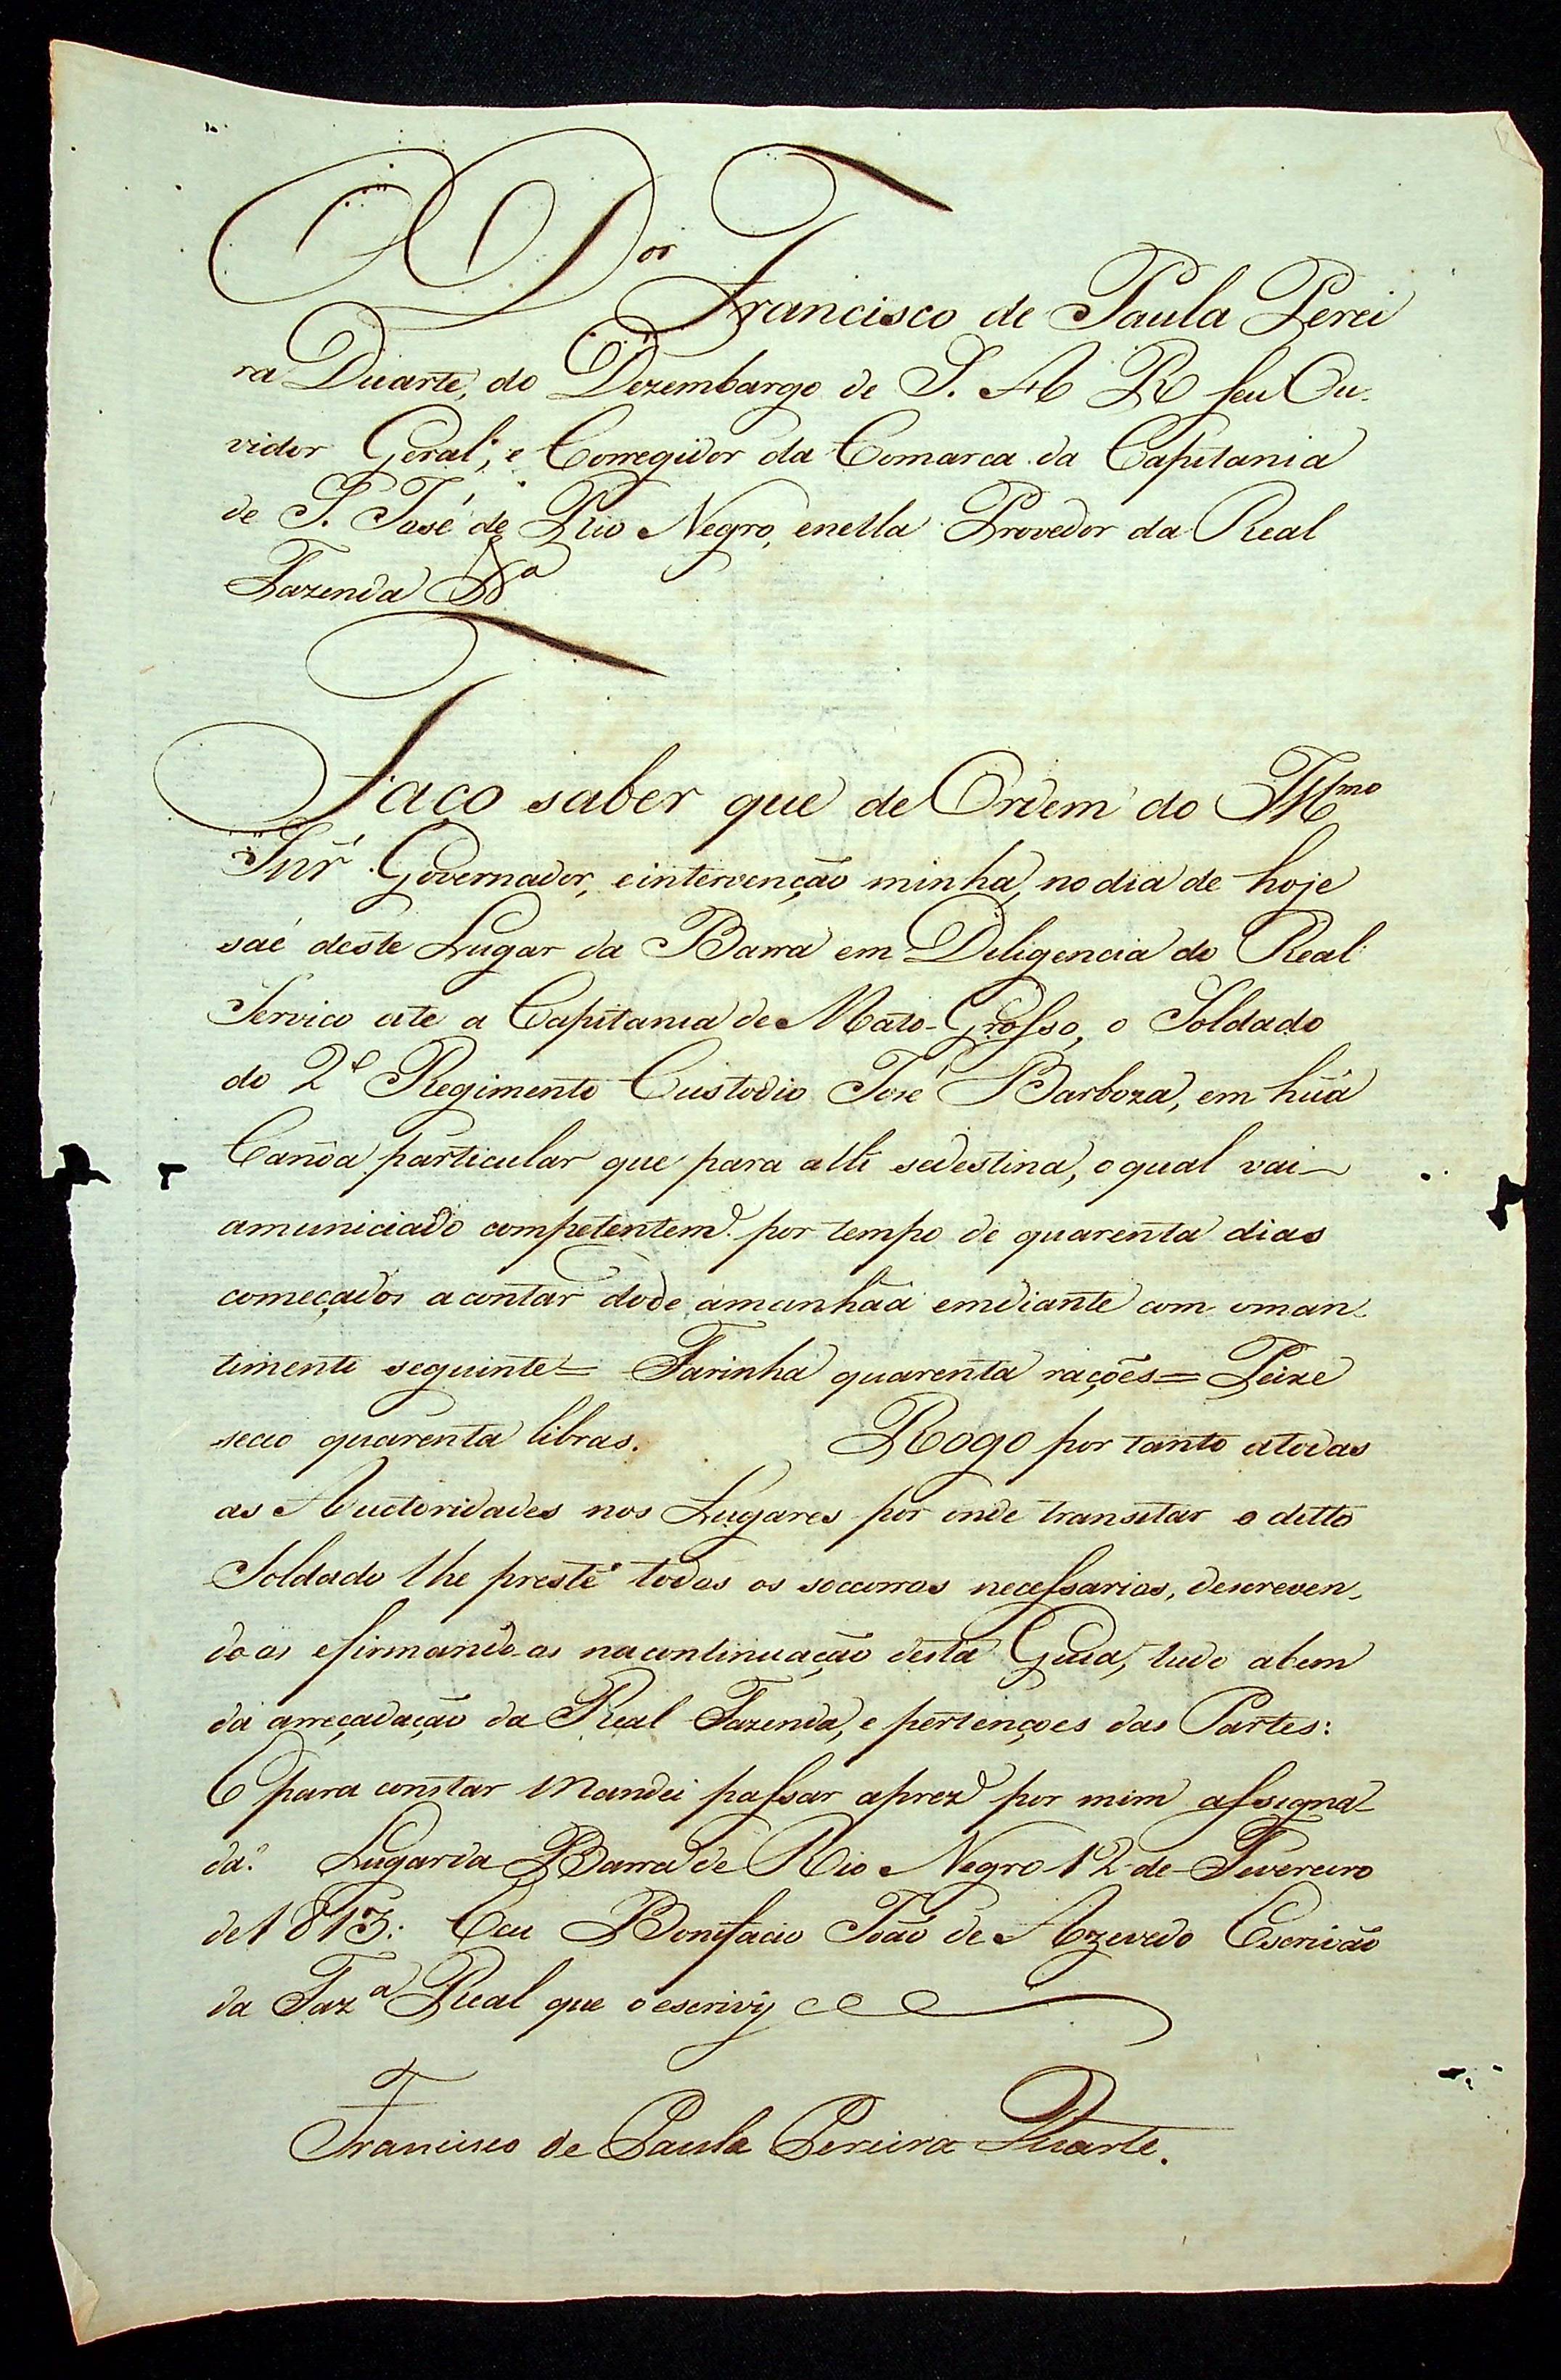 O Dor Francisco de Paula Perei
ra Duarte, do Dezembargo de S. A R seu Ou-
vidor Geral, e Corregidor da Comarca da Capitania
de S. José do Rio Negro, enella Provedor da Real
Fazenda &a
Faço saber que de Ordem do Illmo
Snr Governador, eintervenção minha, nodia de hoje
saé deste Lugar da Barra em Deligencia do Real
Servico ate a Capitania de Mato-Grosso, o Soldado
do 2º Regimento Custodio José Barboza, em hũa
Canôa particular que para alli sedestina, oqual vai
amuniciado competentemẽ. por tempo de quarenta dias
começados acontar dode amanhãa emdiante com oman-
timento seguinte= Farinha quarenta rações= Peixe
seco quarenta libras. Rogo por tanto atodas
as Auctoridades nos Lugares por onde transitar o ditto
Soldado lhe prestẽ todos os soccorros necessarios, descreven-
do-os efirmando-os nacontinuação desta Guia, tudo abem
da arrecadação da Real Fazenda, e pertenções das Partes:
E para constar Mandei passar aprezẽ por mim assigna-
da. Lugar da Barra do Rio Negro 12 de Fevereiro
de 1813: Eeu Bonifacio João de Azevedo Escrivão
da Faza Real que oescrivy
Francisco de Paula Pereira Duarte.